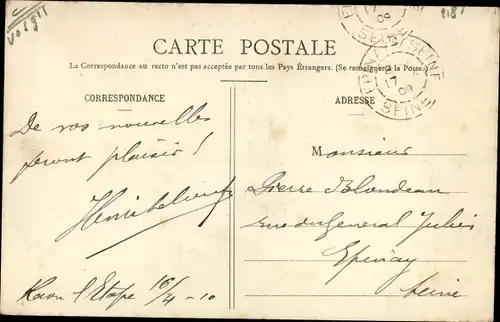 Vosges
CARTE POSTALE
La Correspondance au recto n'est pas acceptée par tous les Pays Étrangers. (Se renseigner à la Poste.)
CORRESPONDANCE
ADRESSE
De vos nouvelles
feront plaisir !
Raon l'Etape 16/4-10
Monsieur
Pierre Blondeau
rue du General Julien
Epinay
Seine
SEINE
09
SEINE
SEINE
09